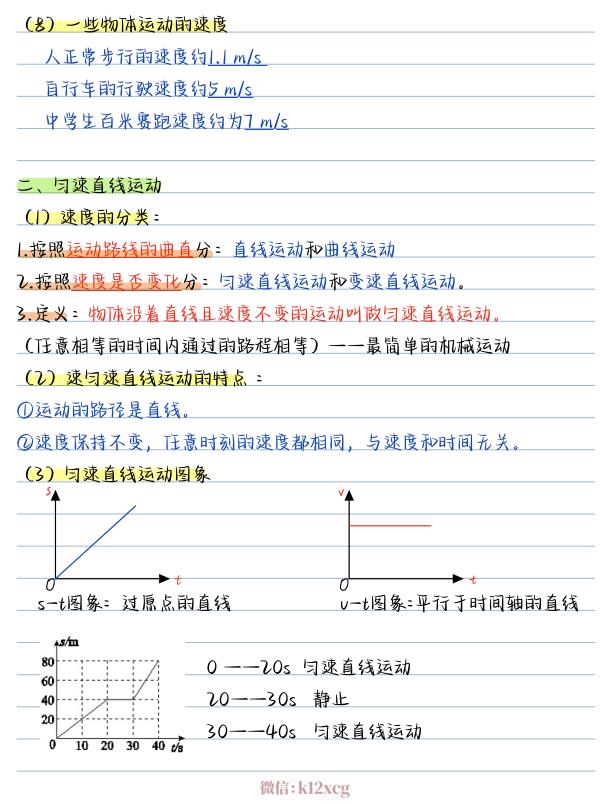 （8）一些物体运动的速度
人正常步行的速度约1.1 m/s
自行车的行驶速度约5 m/s
中学生百米赛跑速度约为7 m/s
二、匀速直线运动
（1）速度的分类：
1.按照运动路线的曲直分：直线运动和曲线运动
2.按照速度是否变化分：匀速直线运动和变速直线运动。
3.定义：物体沿着直线且速度不变的运动叫做匀速直线运动。
（任意相等的时间内通过的路程相等）——最简单的机械运动
（2）速匀速直线运动的特点：
①运动的路径是直线。
②速度保持不变，任意时刻的速度都相同，与速度和时间无关。
（3）匀速直线运动图象
s
v
0 t
0 t
s-t图象：过原点的直线
v-t图象:平行于时间轴的直线
s/m
80
60
40
20
0 10 20 30 40 t/s
0 ——20s 匀速直线运动
20——30s 静止
30——40s 匀速直线运动
微信:k12xcg